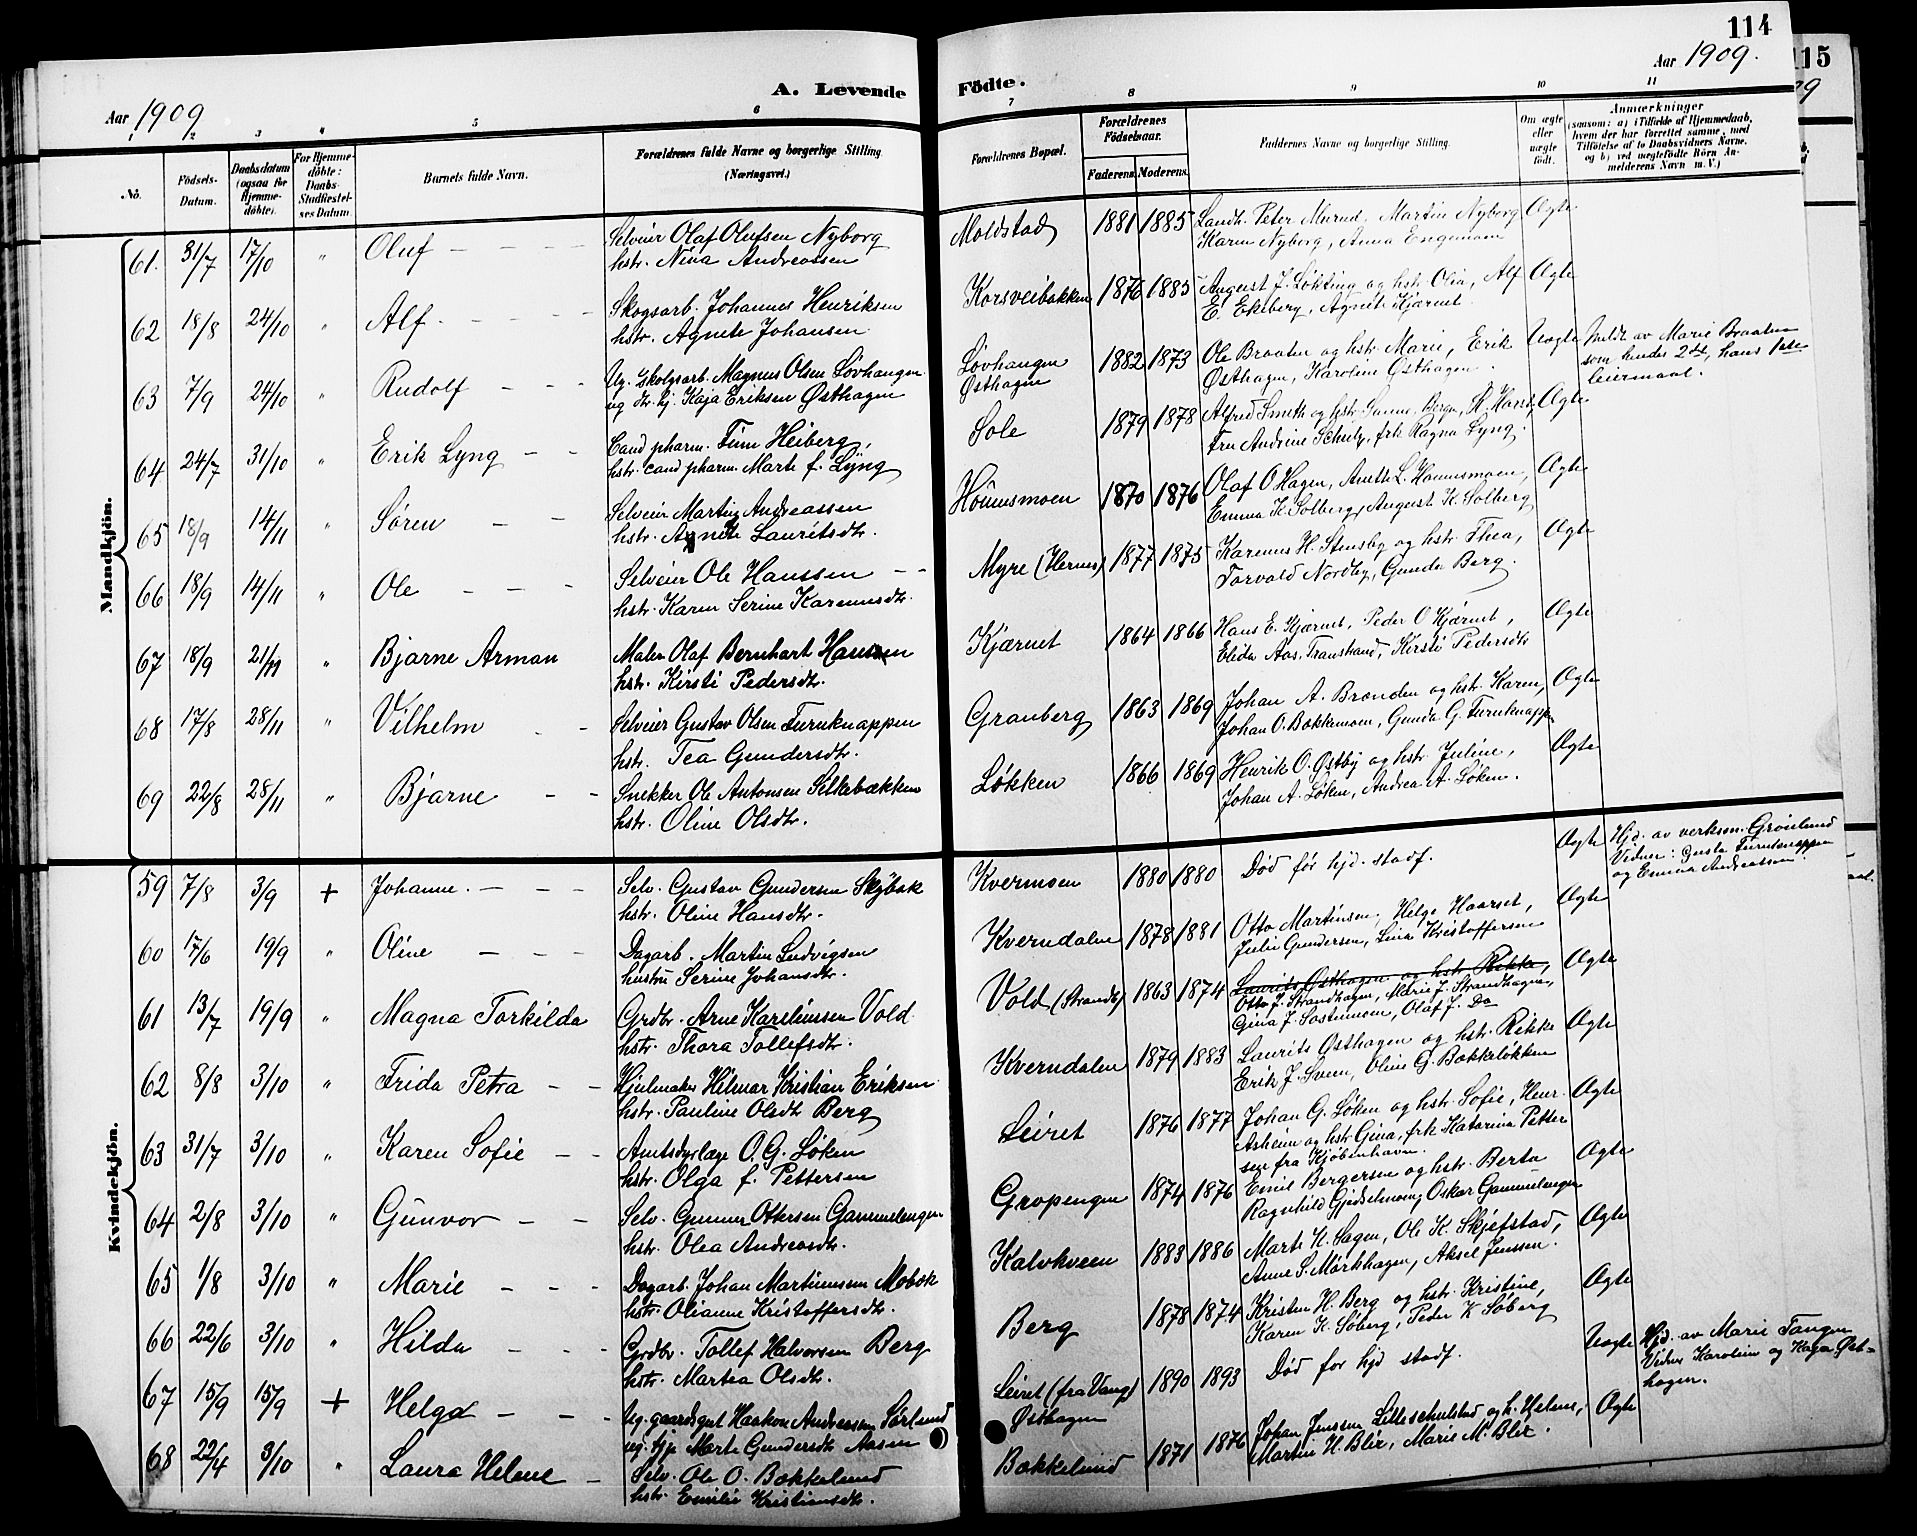 114
115
Aar 1909
A. Levende
Födte.
Aar 1909.
1 2 3 4 5 6 7 8 9 10 11
No.
Födsels-
Datum.
Daabsdatum
(ogsaa for
Hjemme-
döbte).
For Hjemme-
döbte:
Daabs-
Stadfæstel-
ses Datum.
Barnets fulde Navn.
Forældrenes fulde Navne og borgerlige Stilling
(Næringsvei.)
Forældrenes Bopæl.
Forældrenes
Födselsaar.
Faderens. Moderens.
Faddernes Navne og borgerlige Stilling.
Om ægte
eller
uægte
født.
Anmærkninger
(saasom: a) i Tilfælde af Hjemmedaab,
hvem der har forrettet samme, med
Tilföielse af to Daabsvidners Navne,
og b) ved uægtefödte Börn An-
melderens Navn m. V.)
Mandkjön.
61. 31/7 17/10 " Oluf — Selveier Olaf Olufsen Nyborg
hstr. Nina Andreassen
Moldstad 1881 1885 Landh. Peter Murud, Martin Nyborg Ægte
Karen Nyborg, Anna Engemoen
62 18/8 24/10 " Alf — Skogsarb. Johannes Henriksen
hstr. Agnete Johansen
Korsveibakken 1876 1885 August J. Løkting og hstr. Olia, Alf Ægte
E. Ekeberg, Agnete Kjærnet.
63 7/9 24/10 " Rudolf — Ug. skogsarb. Magnus Olsen Løvhaugen
ug dtr. hj. Kaja Eriksen Østhagen
Løvhaugen
Østhagen
1882 1873 Ole Braaten og hstr Marie, Erik Uægte
Østhagen, Karoline Østhagen.
Meldt av Marie Braaten
som hendes 2det, hans 1ste
leiermaal.
64 24/7 31/10 " Erik Lyng — Cand pharm. Finn Heiberg,
hstr. cand pharm. Marte f. Lyng
Sole 1879 1878 Alfred Smith og hstr. Ægte
Fru Andrine Schulz, frk Ragna Lyng.
65 18/9 14/11 " Søren — Selveier Martin Andreassen
hstr. Agnete Lauritsdtr.
1870 1876 Olaf O Hagen, Anette L. Ægte
Emma K. Solberg, August K. Solberg
66 18/9 14/11 " Ole — Selveier Ole Hanssen —
hstr. Karen Serine Karenusdtr.
Myre (Hernes) 1877 1875 Karenus H. Stensby og hstr. Thea, Ægte
Torvald Nordby, Gunda Berg.
67 18/9 21/11 " Bjarne Arman Maler Olaf Bernhart Hansen
hstr. Kirsti Pedersdtr.
Kjærnet 1864 1866 Hans E. Kjærnet, Peder O Kjærnet, Ægte
Elida Aas, Transtrand, Kirsti Pedersdtr
68 17/8 28/11 " Vilhelm — Selveier Gustav Olsen Furuknappen
hstr. Tea Gundersdtr.
Granberg 1863 1869 Johan A. Brænden og hstr. Karen, Ægte
Johan O. Bakkemoen, Gunda G. Furuknapp
69 22/8 28/11 " Bjarne — Snekker Ole Antonsen Silkebækken
hstr. Oline Olsdtr.
Løkken 1866 1869 Henrik O. Østby og hstr. Juline, Ægte
Johan A. Løken, Andrea A. Løken.
Kvindekjön.
59 7/8 3/9 + Johanne. — Selv. Gustav Gundersen Skybak
hstr. Oline Hansdtr.
Kvermoen 1880 1880 Død før hjd. stadf. Ægte
Hjd. av verksm. Grönlund
Vidner: Gusta Furuknappen
og Emma Andreassen.
60 17/6 19/9 " Oline — Dagarb. Martin Ludvigsen
hustru Serine Johansdtr.
Kverndalen 1878 1881 Otto Martinsen, Helge Haarset, Ægte
Julie Gundersen, Lina Kristoffersen
61 13/7 19/9 " Magna Torkilda Grdbr. Arne Karelinssen Vold
hstr. Thora Tollefsdtr.
Vold (Strandb) 1863 1874 Laurits Østhagen og hstr. Rikke, Ægte
Otto J. Strandhagen, Marie J. Strandhagen,
Gina J. Sostumoen, Olaf J. Do
62 8/8 3/10 " Frida Petra — Hjulmaker Hilmar Kristian Eriksen
hstr. Pauline Olsdtr Berg
Kverndalen 1879 1883 Laurits Østhagen og hstr. Rikke Ægte
Erik J. Sveen, Oline G. Bakkeløkken
63 31/7 3/10 " Karen Sofie — Amtsdyrlæge O. G. Løken
hstr. Olga f. Pettersen
Leiret 1876 1877 Johan G. Løken og hstr. Sofie, Henr. Ægte
Asheim og hstr Gina, frk Katarina Petter
sen fra Kjøbenhavn.
64 2/8 3/10 " Gunvor — Selv. Gunner Ottersen Gammelengen
hstr. Olea Andreasdtr.
Gropengen 1874 1876 Emil Bergersen og hstr. Berta Ægte
Ragnhild Gjidselmoen, Oskar Gammelengen
65 1/8 3/10 " Marie — Dagarb. Johan Martinussen Mobæk
hstr. Olianne Kristoffersdtr.
Kalvkveen 1883 1886 Marte N. Sagen, Ole K. Skjefstad, Ægte
Anne S. Mørkhagen, Aksel Jenssen.
66 22/6 3/10 " Hilda — Grdbr. Tollef Halvorsen Berg
hstr. Martea Olsdtr.
Berg 1878 1874 Kristen H. Berg og hstr. Kristine, Ægte
Karen K. Søberg, Peder K Søberg
67 15/9 15/9 + Helga — Ug. gaardsgut Haakon Andreassen Sørlund
ug. tjp Marte Gundersdtr Aasen
Leiret (fra Vang)
Østhagen
1890 1893 Død for hjd stadf. Uægte
Hjd. av Marie Tangen
Vidner Karoline og Kaja Øst-
hagen.
68 22/4 3/10 " Laura Helene — Selv. Ole O. Bakkelund
hstr. Emilie Kristiansdtr.
Bakkelund 1871 1876 Johan Jenssen Lilleschulstad og h. Helene, Ægte
Martin H. Blix, Marie M. Blix.